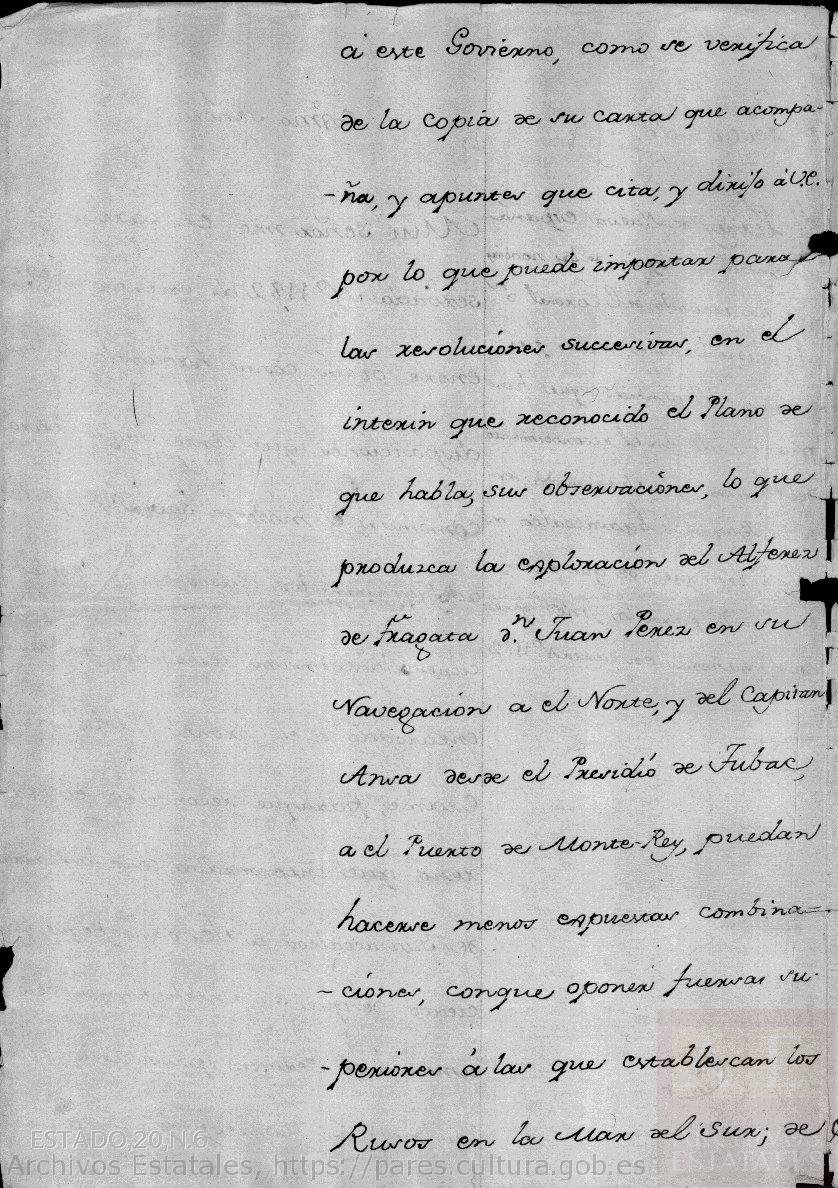 á este Govierno, como se verifica
de la Copia de su carta que acompa-
-ña, y apuntes que cita, y dirijo á V.E.
por lo que puede importar para
las resoluciones succesivas, en el
interin que reconocido el Plano de
que habla, sus observaciónes, lo que
produzca la exploración del Alferez
de Fragata d.n Juan Perez en su
Navegación a el Norte, y del Capitan
Ansa desde el Presidió de Tubac,
a el Puerto de Monte-Rey, puedan
hacerse menos expuestas combina-
-ciones, conque oponer fuersas su-
-periores á las que establescan los
Rusos en la Mar del Sur; de
ESTADO,20,N.6
Archivos Estatales, https://pares.cultura.gob.es
ESTATALES